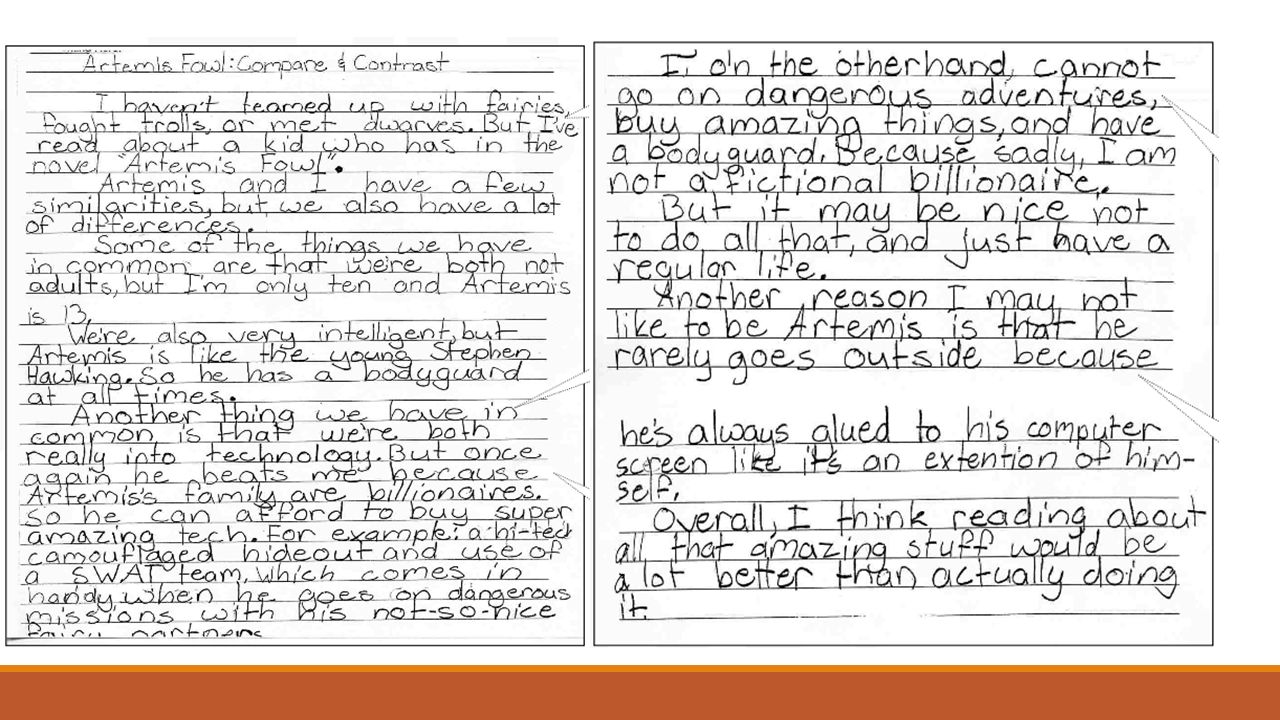 Artemis Fowl: Compare & Contrast
I haven't teamed up with fairies,
fought trolls, or met dwarves. But I've
read about a kid who has in the
novel "Artemis Fowl".
Artemis and I have a few
similarities, but we also have a lot
of differences.
Some of the things we have
in common are that we're both not
adults, but I'm only ten and Artemis
is 13.
We're also very intelligent, but
Artemis is like the young Stephen
Hawking. So he has a bodyguard
at all times.
Another thing we have in
common is that we're both
really into technology. But once
again he beats me because
Artemis's family are billionaires.
So he can afford to buy super
amazing tech. For example: a hi-tech
camouflaged hideout and use of
a SWAT team, which comes in
handy when he goes on dangerous
missions with his not-so-nice
fairy partners
I, on the otherhand, cannot
go on dangerous adventures,
buy amazing things, and have
a bodyguard. Because sadly, I am
not a fictional billionaire.
But it may be nice not
to do all that, and just have a
regular life.
Another reason I may not
like to be Artemis is that he
rarely goes outside because
he's always glued to his computer
screen like it's an extention of him-
self.
Overall, I think reading about
all that amazing stuff would be
a lot better than actually doing
it.